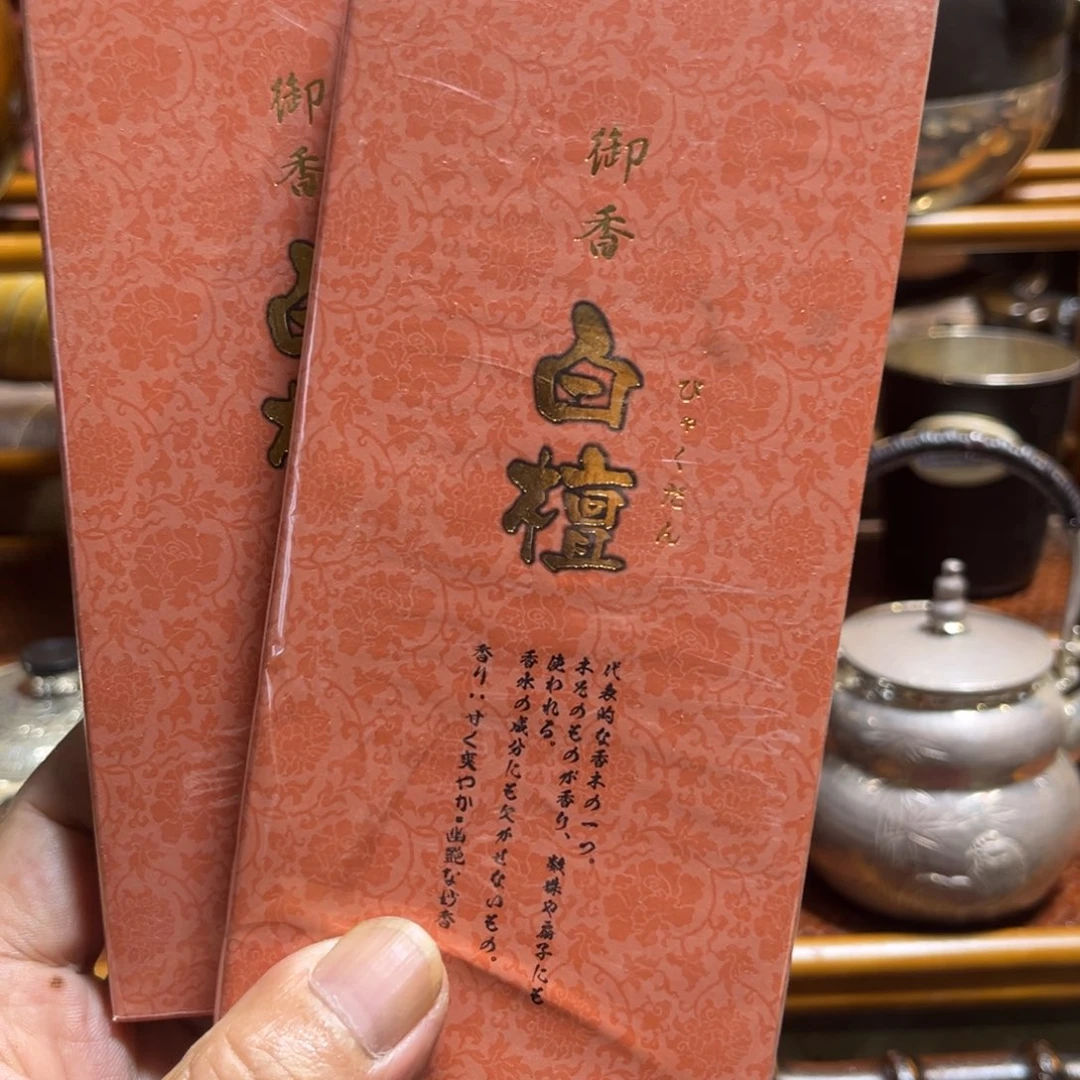 御香
白檀
びゃくだん
代表的な香木の一つ。
木そのものが香り、数珠や扇子にも
使われる。
香水の成分にも欠かせないもの。
香り‥甘く爽やか・幽艶な妙香
御香
白檀